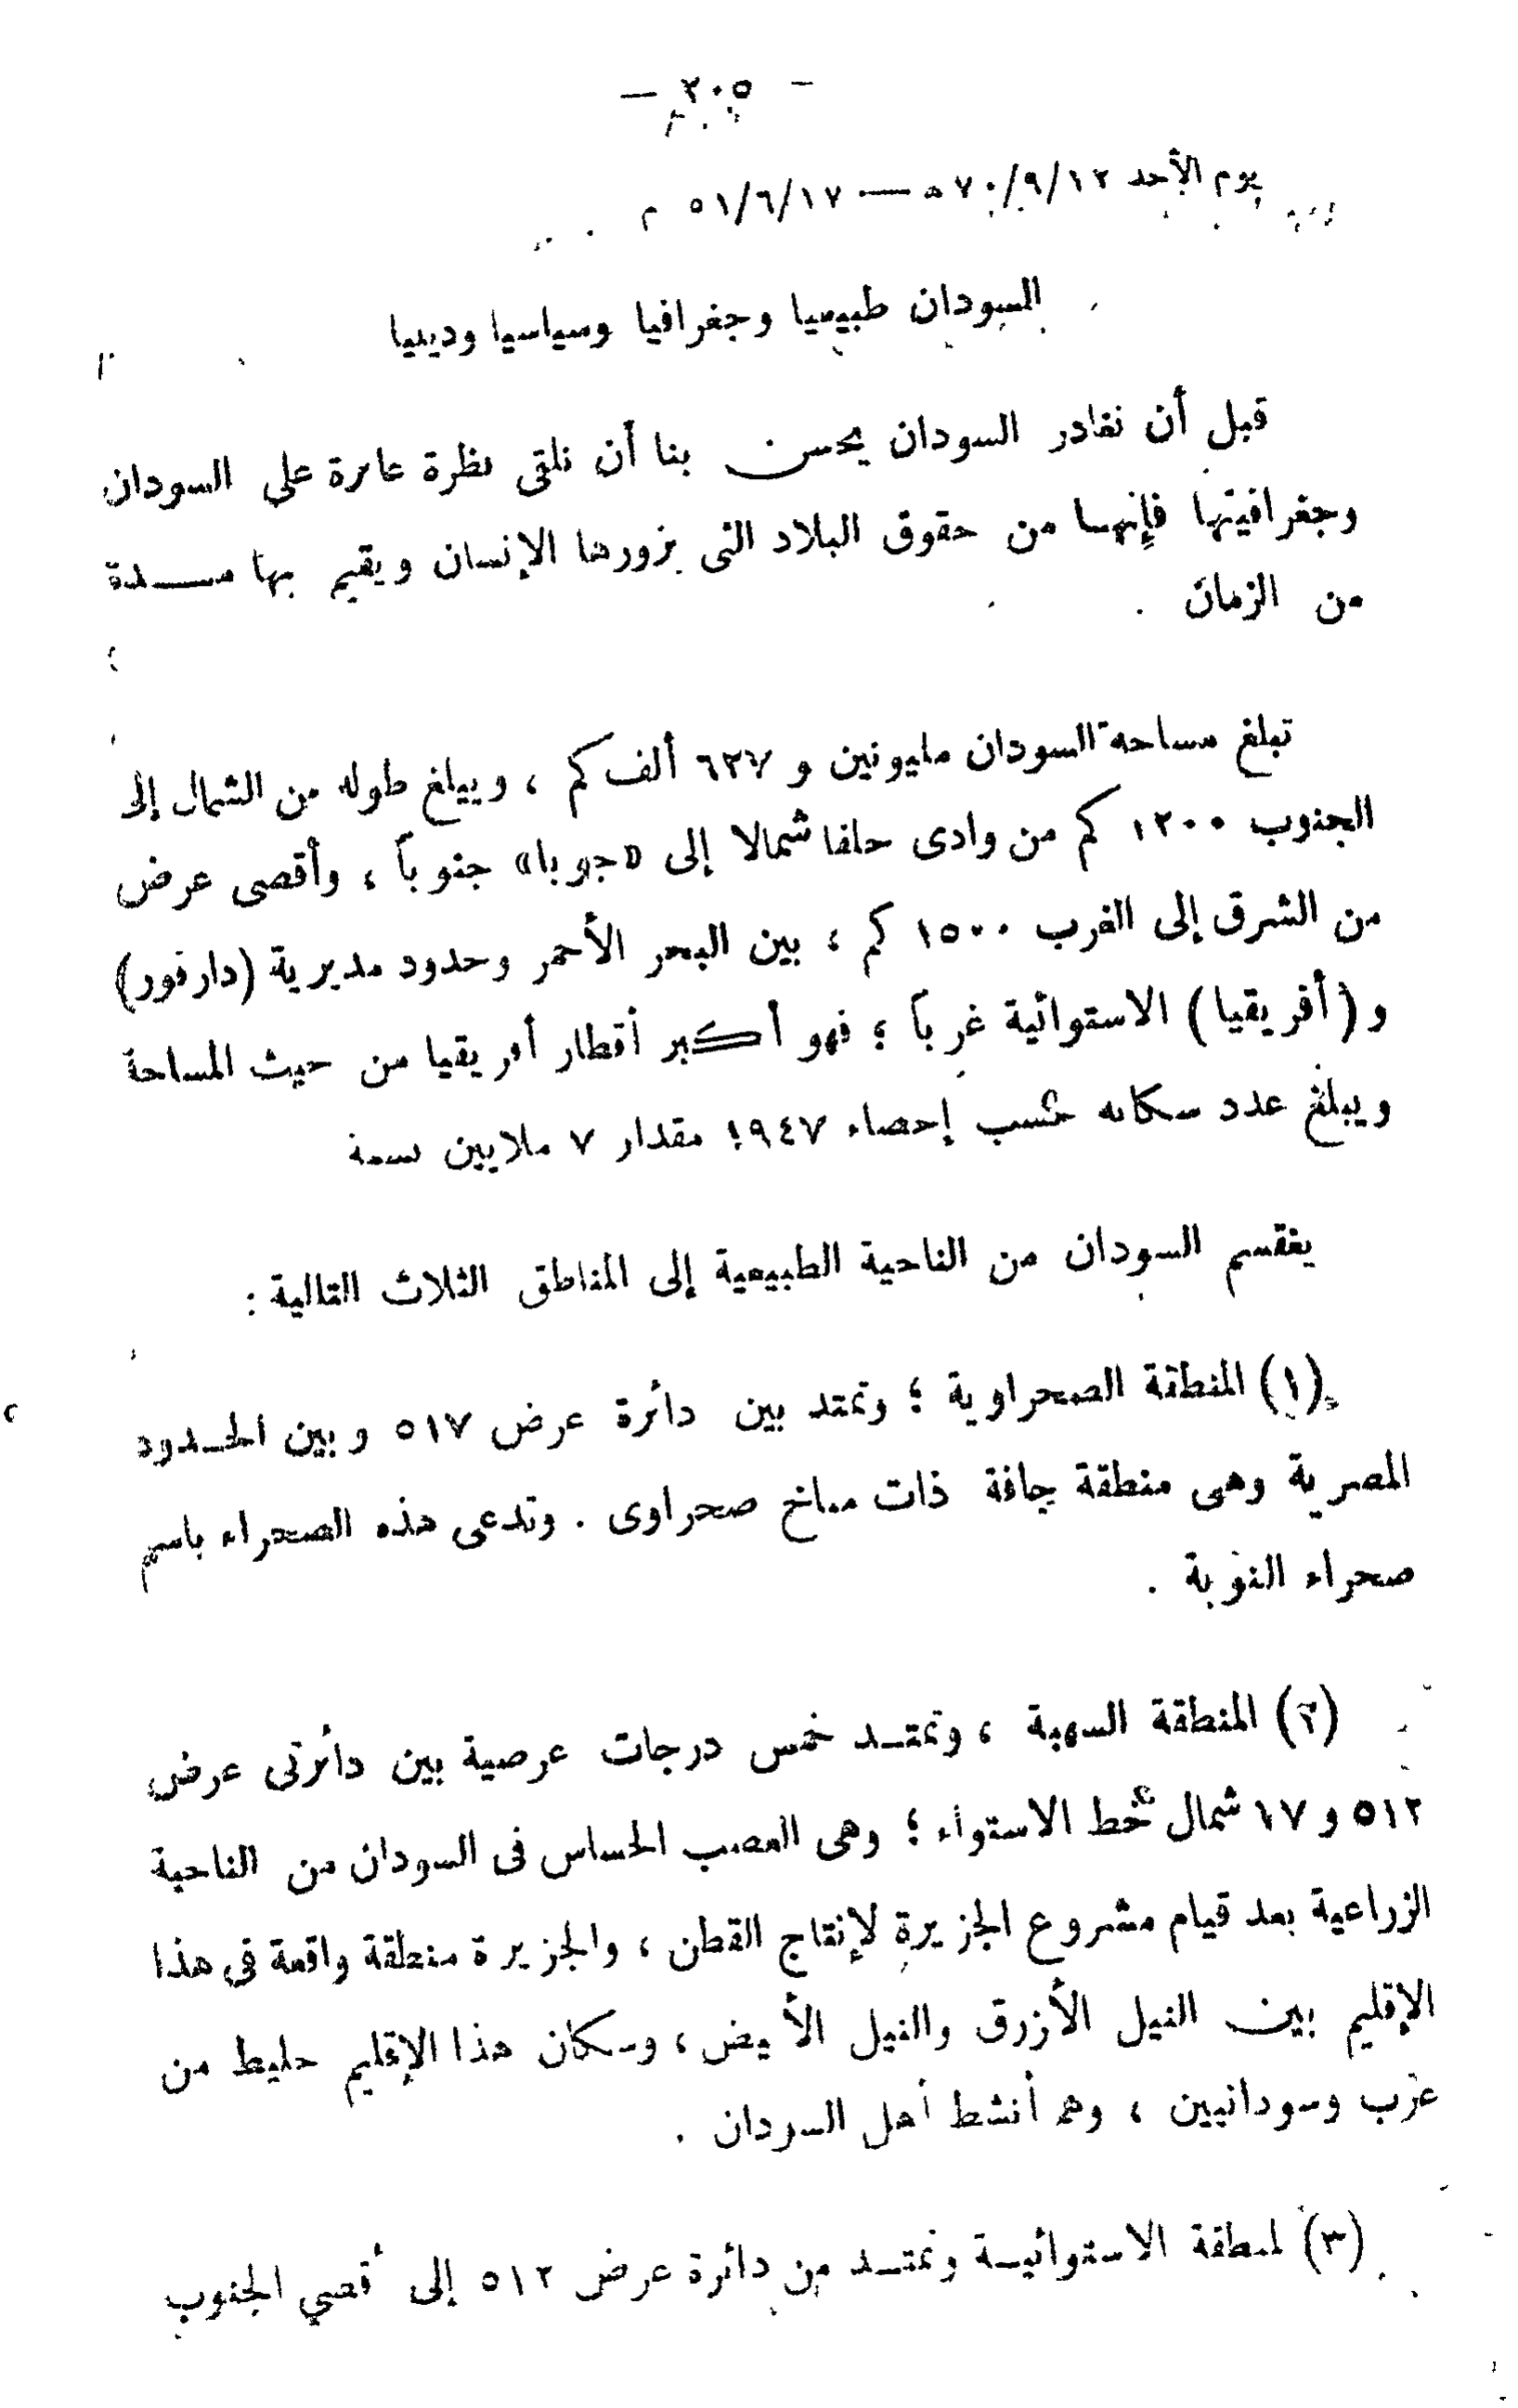 — ٢٠٥ —
يوم الأحد ٧٠/٩/١٢ ه — ٥١/٦/١٧ م
السودان طبيعيا وجغرافيا وسياسيا ودينيا
قبل أن نغادر السودان يحسن بنا أن نلقى نظرة عابرة على السودان
وجغرافيتها فإنهـا من حقوق البلاد التى يزورها الإنسان ويقيم بها مــدة
من الزمان .
تبلغ مساحة السودان مليونين و ٦٢٧ ألف كم ، ويبلغ طوله من الشمال إلى
الجنوب ١٢٠٠ كم من وادى حلفا شمالا إلى «جوبا» جنوباً ، وأقصى عرض
من الشرق إلى الغرب ١٥٠٠ كم ، بين البحر الأحمر وحدود مديرية (دارفور)
و (أفريقيا) الاستوائية غرباً ؛ فهو أكبر أقطار أفريقيا من حيث المساحة
ويبلغ عدد سكانه حسب إحصاء ١٩٤٧ مقدار ٧ ملايين نسمة
ينقسم السودان من الناحية الطبيعية إلى المناطق الثلاث التالية :
(١) المنطقة الصحراوية ؛ وتمتد بين دائرة عرض ٥١٧ وبين الحـدود
المصرية وهى منطقة جافة ذات مناخ صحراوى . وتدعى هذه الصحراء باسم
صحراء النوبة .
(٢) المنطقة السهبة ، وتمتـد خمس درجات عرضية بين دائرتى عرض
٥١٢ و ١٧ شمال خط الاستواء ؛ وهى العصب الحساس فى السودان من الناحية
الزراعية بعد قيام مشروع الجزيرة لإنتاج القطن ، والجزيرة منطقة واقعة فى هذا
الإقليم بين النيل الأزرق والنيل الأبيض ، وسكان هذا الإقليم خليط من
عرب وسودانيين ، وهم أنشط أهل السودان .
(٣) المنطقة الاستوائيـة وتمتـد من دائرة عرض ٥١٢ إلى أقصي الجنوب